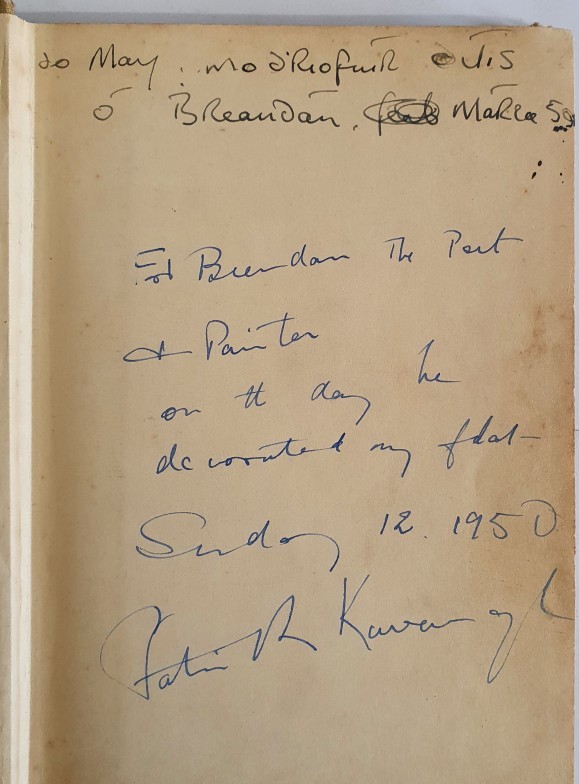 do May, mo driofúir dílis
ó Breandán, Márta 59
For Brendan The Poet
& Painter
on the day he
decorated my flat—
Sunday 12. 1950
Patrick Kavanagh